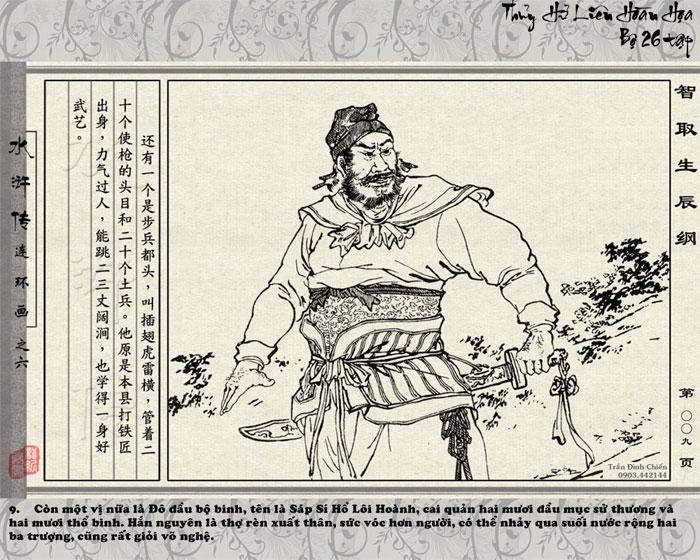 Thủy Hử Liên Hoàn Họa
Bộ 26 tập
智取生辰纲
还有一个是步兵都头，叫插翅虎雷横，管着二
十个使枪的头目和二十个土兵。他原是本县打铁匠
出身，力气过人，能跳二三丈阔涧，也学得一身好
武艺。
水浒传连环画之六
第〇〇九页
Trần Đình Chiến
0903.442144
9. Còn một vị nữa là Đô đầu bộ binh, tên là Sáp Sí Hổ Lôi Hoành, cai quản hai mươi đầu mục sử thương và
hai mươi thổ binh. Hắn nguyên là thợ rèn xuất thân, sức vóc hơn người, có thể nhảy qua suối nước rộng hai
ba trượng, cũng rất giỏi võ nghệ.